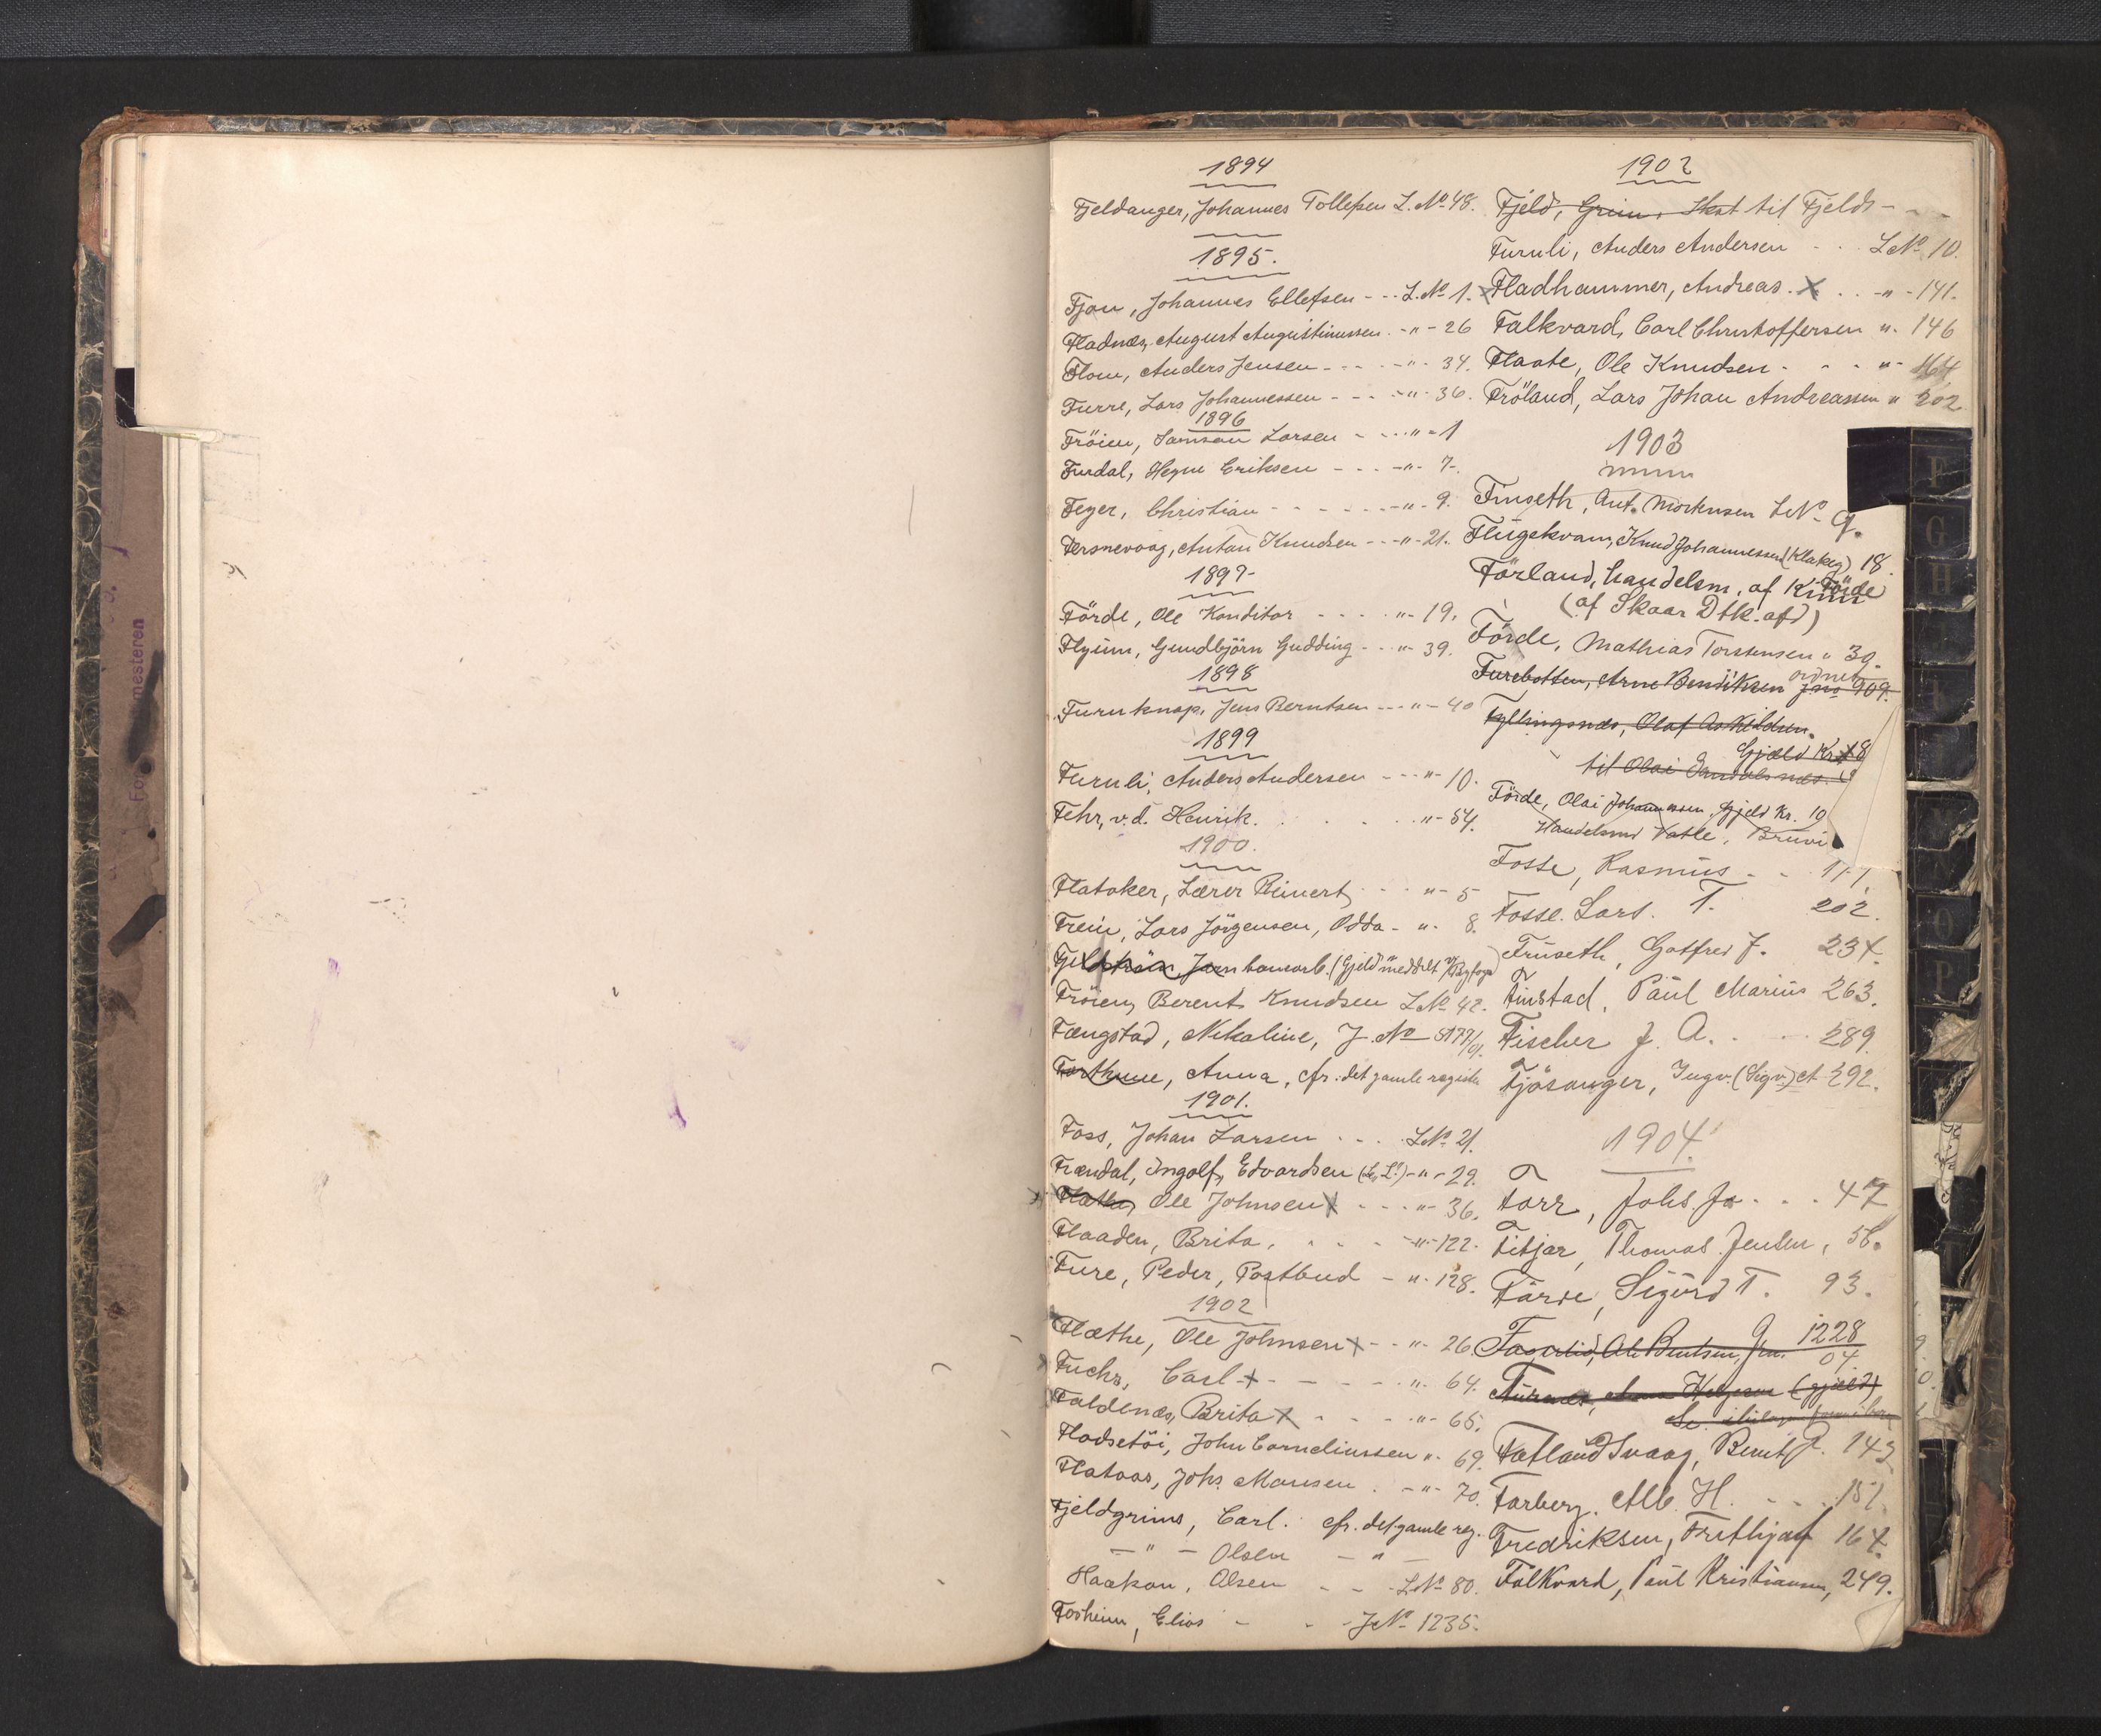 1894
Fjeldanger, Johannes Tollefsen L.No 48.
1895.
Fjon, Johannes Ellefsen - - - L.No 1.
Fladnæs, August Augustinussen. -"- 26
Flom, Anders Jensen - - - - -"- 34.
Furre, Lars Johannessen - - - -"- 36.
1896
Fröien, Samson Larsen - - - " - 1
Furdal, Hegne Eriksen - - - -"- 7-
Feyer, Christian - - - - - - -"- 9.
Fersnevaag, Anton Knudsen - - -"- 21.
1897
Förde, Ole Konditor - - - - "- 19.
Flyum, Gundbjörn Gudding - - "- 39.
1898
Furuknap, Jens Berntsen - - - "- 40
1899
Furuli, Anders Andersen - - - "- 10.
Fehr, v.d. Henrik. . . . "- 54.
1900.
Flatoker, Lærer Reinert - - - "- 5
Frein, Lars Jörgensen, Odda - ". 8.
Jernbanearb. (Gjeld meddelt Byfoged)
Fröien, Berent Knudsen L.No 42.
Fængstad, Nikoline, J. No 5177/01.
Forthun, Anna, cfr. det gamle register
1901.
Foss, Johan Larsen - - - L.No 21.
Frændal, Ingolf, Edvardsen -"- 29.
Flæthe, Ole Johnsen X - - - "- 36.
Flaaden, Brita, - - - -"- 122.
Fure, Peder, Postbud - ". 128.
1902
Flæthe, Ole Johnsen X - - "- 26
Fuchs, Carl X - - - - - "- 64.
Faldenæs, Brita X - - - - "- 65.
Flodsetöi, John Corneliussen ". 69.
Flatoas, Johs. Monsen . -"- 70.
Fjeldgrims, Carl. cfr. det gamle reg.
- " - Olsen - " -
Haakon, Olsen - - L.No 80.
Fosheim, Elias - - - J.No 1235.
1902
Fjeld, Grim, Skat til Fjelds - - -
Furuli, Anders Andersen - - L.No 10.
X Fladhammer, Andreas. X . . -"- 141.
Falkvard, Carl Christoffersen ". 146
Flaate, Ole Knudsen - - - "- 164
Fröland, Lars Johan Andreassen " 202
1903
Finseth, Ant. Mortensen L.No 9.
Flugekvam, Knud Johannessen (Klakeg) 18.
Förland, handelsm. af Förde
(af Skaar Dtk. afd)
Förde, Mathias Torstensen " 39.
Furebotten, Arne Bendiksen J.no 909. ordnet
Fyllingsnæs, Olaf Askildsen.
Gjæld Kr. 18
til Olai
Förde, Olai Johannessen. Gjeld Kr. 10
Handelsmd Vatle, Bruvi
Fosse, Rasmus - - - 177
Fosse. Lars. T. 202.
Fruseth, Gotfred J. 234.
Finstad, Paul Marius 263.
Fischer J. A. - - - 289.
Fjösanger, Ingv. (Sigv.) et 292.
1904.
Farr, Johs. Ja - - - 47
Fitjar, Thomas Jensen, 58.
Färre, Sigurd T. 93.
1228
04.
(gjæld)
Fatland Svaag, Bernt J. 143
Farberg. Alb. H. - - - 151.
Fredriksen, Frithjof 164.
Falkvard, Paul Kristiansen, 249.
F
G
H
O
P